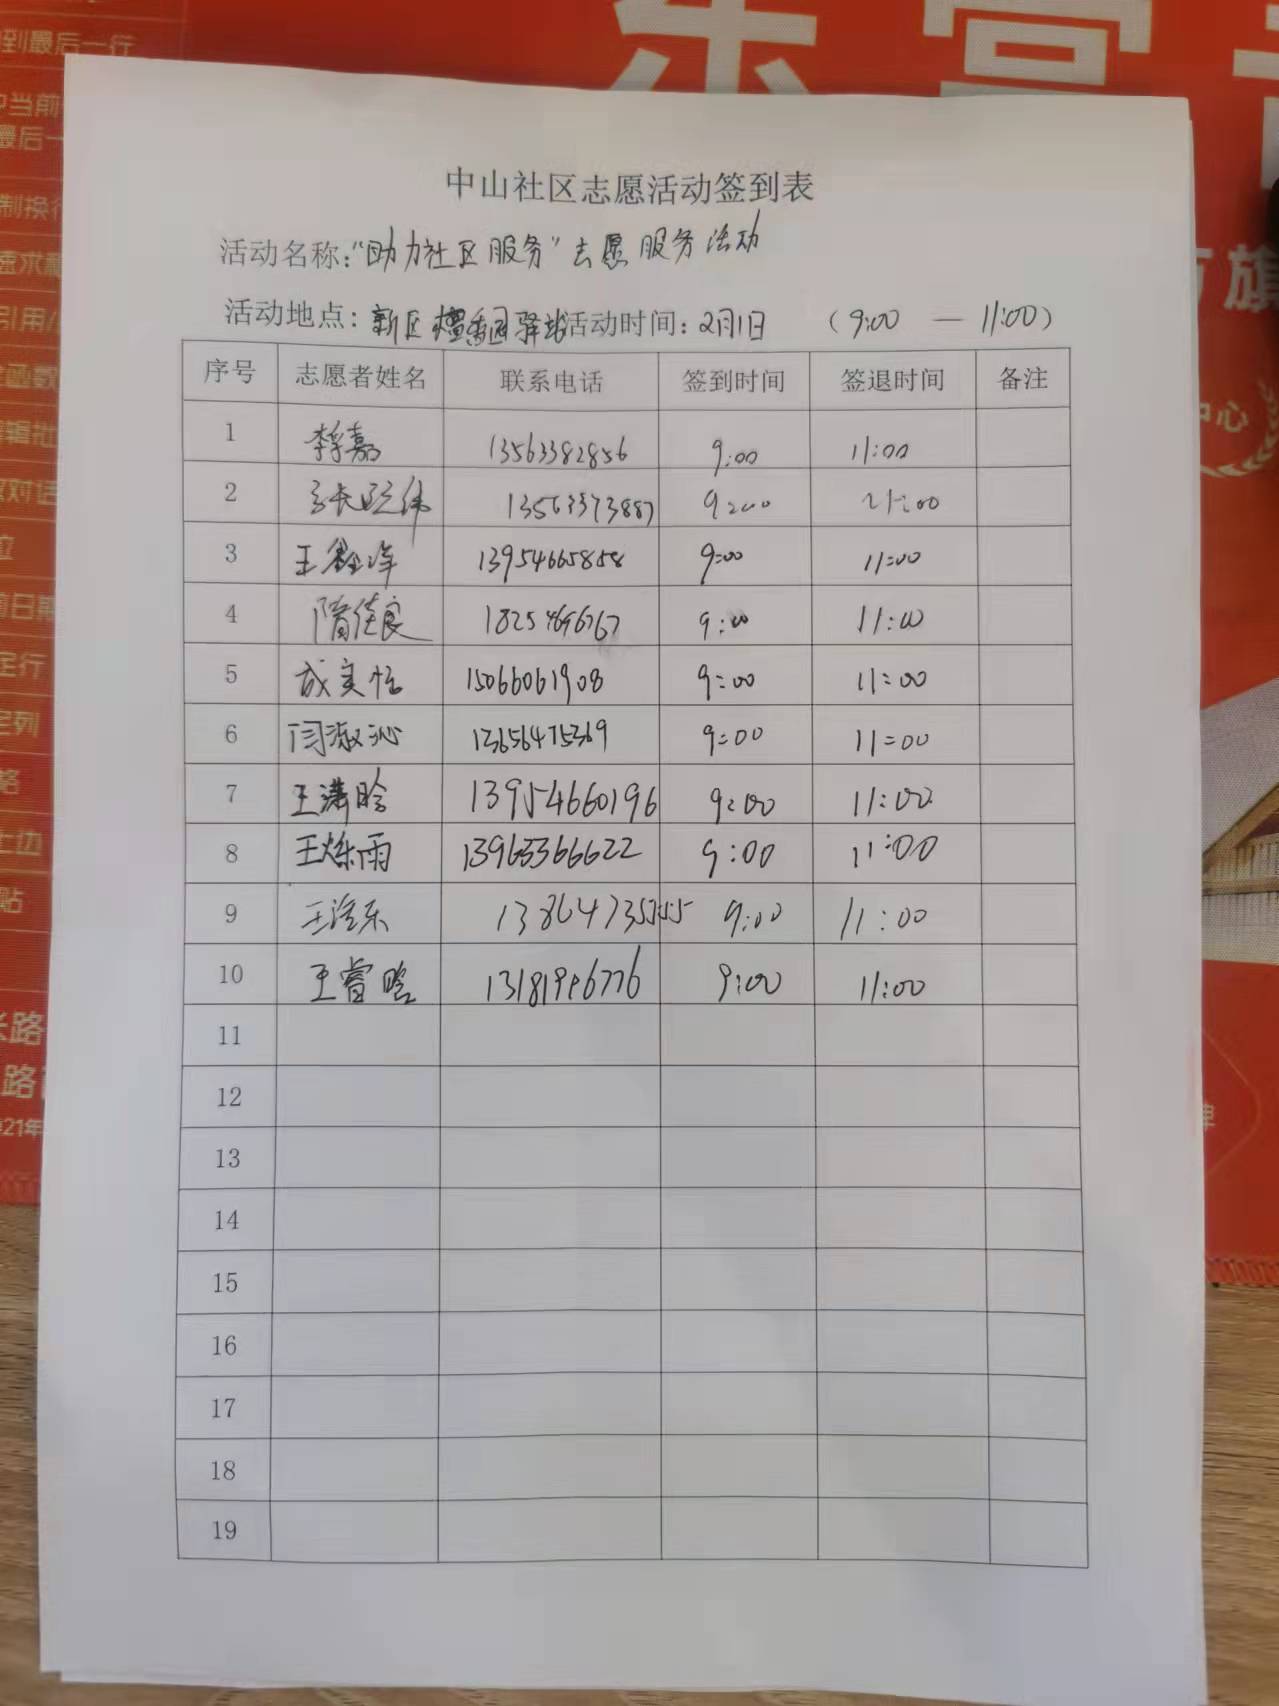 到最后一行
中当前
最后一
制换行
速求和
引用/
函数
编辑批
对话
位
前日期
定行
定列
格
上边
贴
长路
路
021年
东营市
旗
中心
中山社区志愿活动签到表
活动名称:"助力社区服务"志愿服务活动
活动地点:新区檀香园驿站活动时间:2月1日 (9:00 — 11:00)
序号 志愿者姓名 联系电话 签到时间 签退时间 备注
1 李嘉 13563382856 9:00 11:00
2 9:00 11:00
3 王鑫洋 13954665858 9:00 11:00
4 隋佳良 9:00 11:00
5 成实恬 15066061908 9:00 11:00
6 闫淑沁 13656475369 9:00 11:00
7 王潇晗 13954660196 9:00 11:00
8 王烁雨 13963366622 9:00 11:00
9 9:00 11:00
10 王睿晗 9:00 11:00
11
12
13
14
15
16
17
18
19